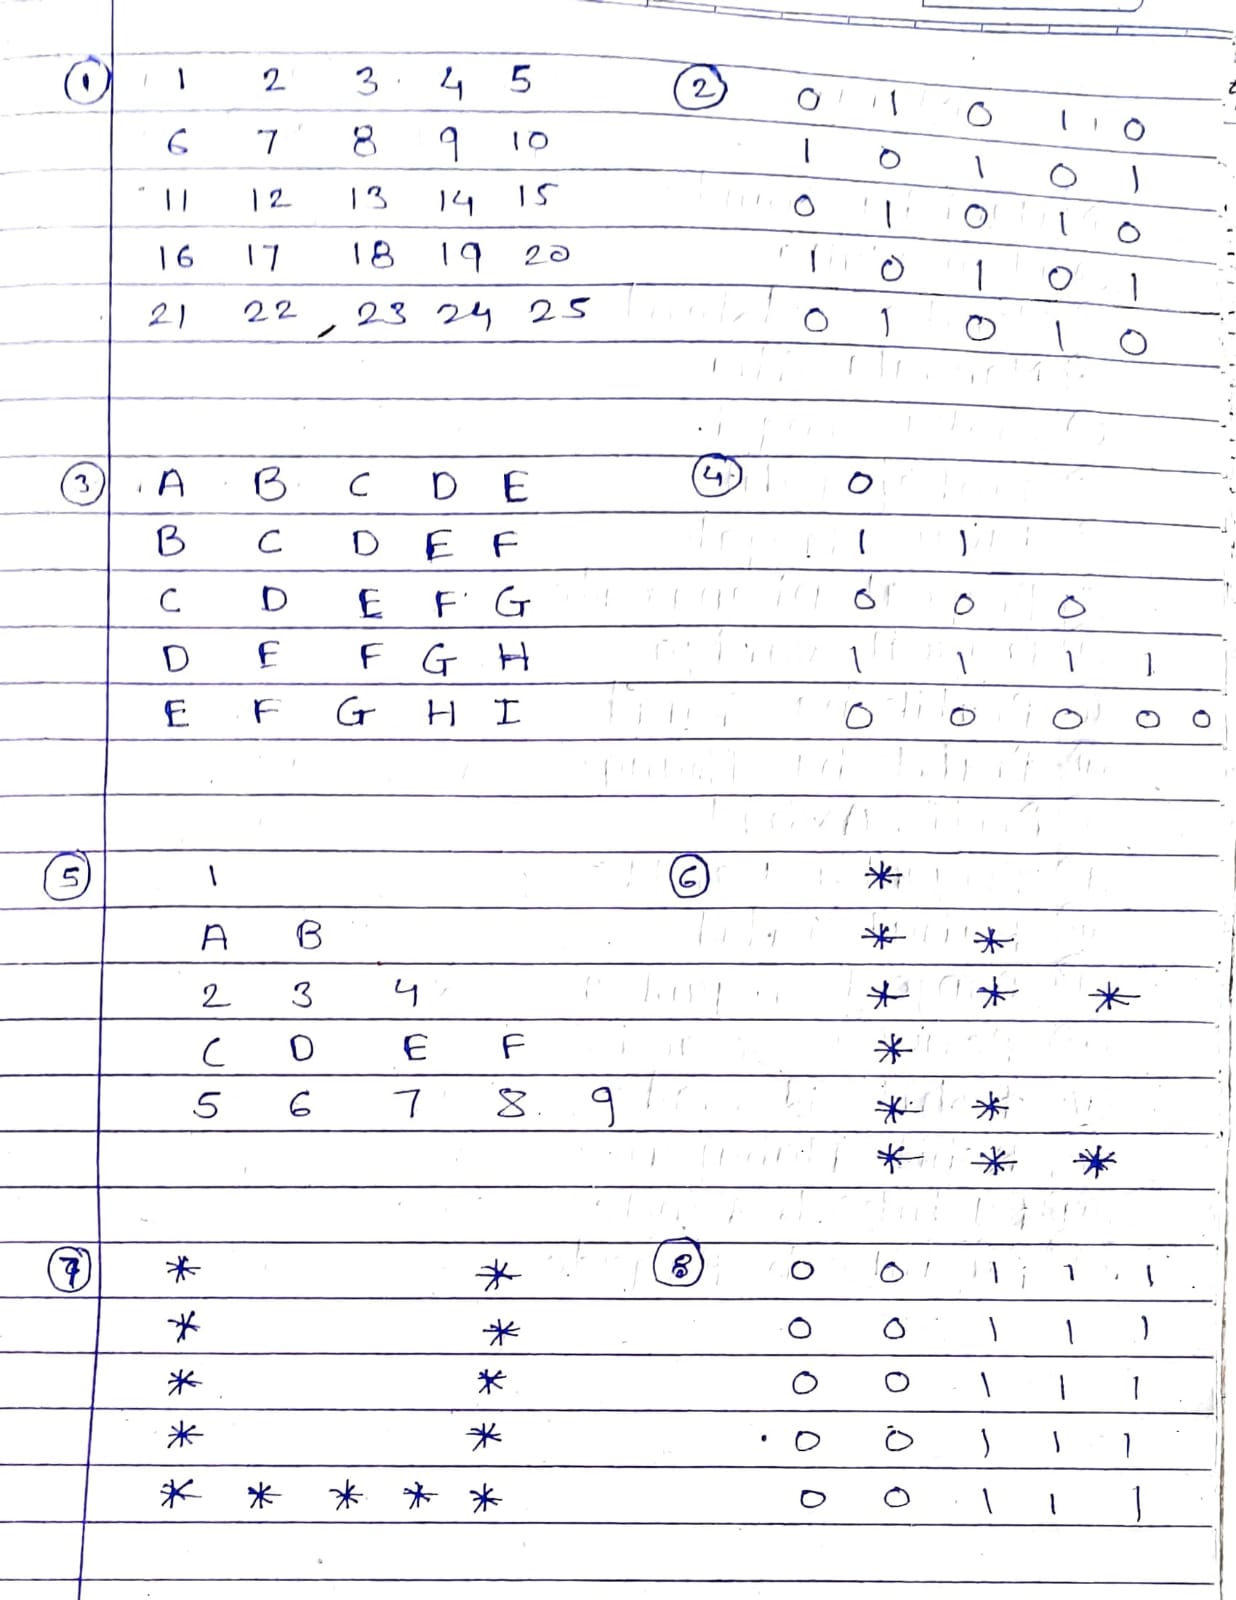 ① 1 2 3 4 5
6 7 8 9 10
11 12 13 14 15
16 17 18 19 20
21 22 23 24 25
② 0 1 0 1 0
1 0 1 0 1
0 1 0 1 0
1 0 1 0 1
0 1 0 1 0
③ A B C D E
B C D E F
C D E F G
D E F G H
E F G H I
④ 0
1 1
0 0 0
1 1 1 1
0 0 0 0 0
⑤ 1
A B
2 3 4
C D E F
5 6 7 8 9
⑥ *
* *
* * *
*
* *
* * *
⑦ * *
* *
* *
* *
* * * * *
⑧ 0 0 1 1 1
0 0 1 1 1
0 0 1 1 1
0 0 1 1 1
0 0 1 1 1